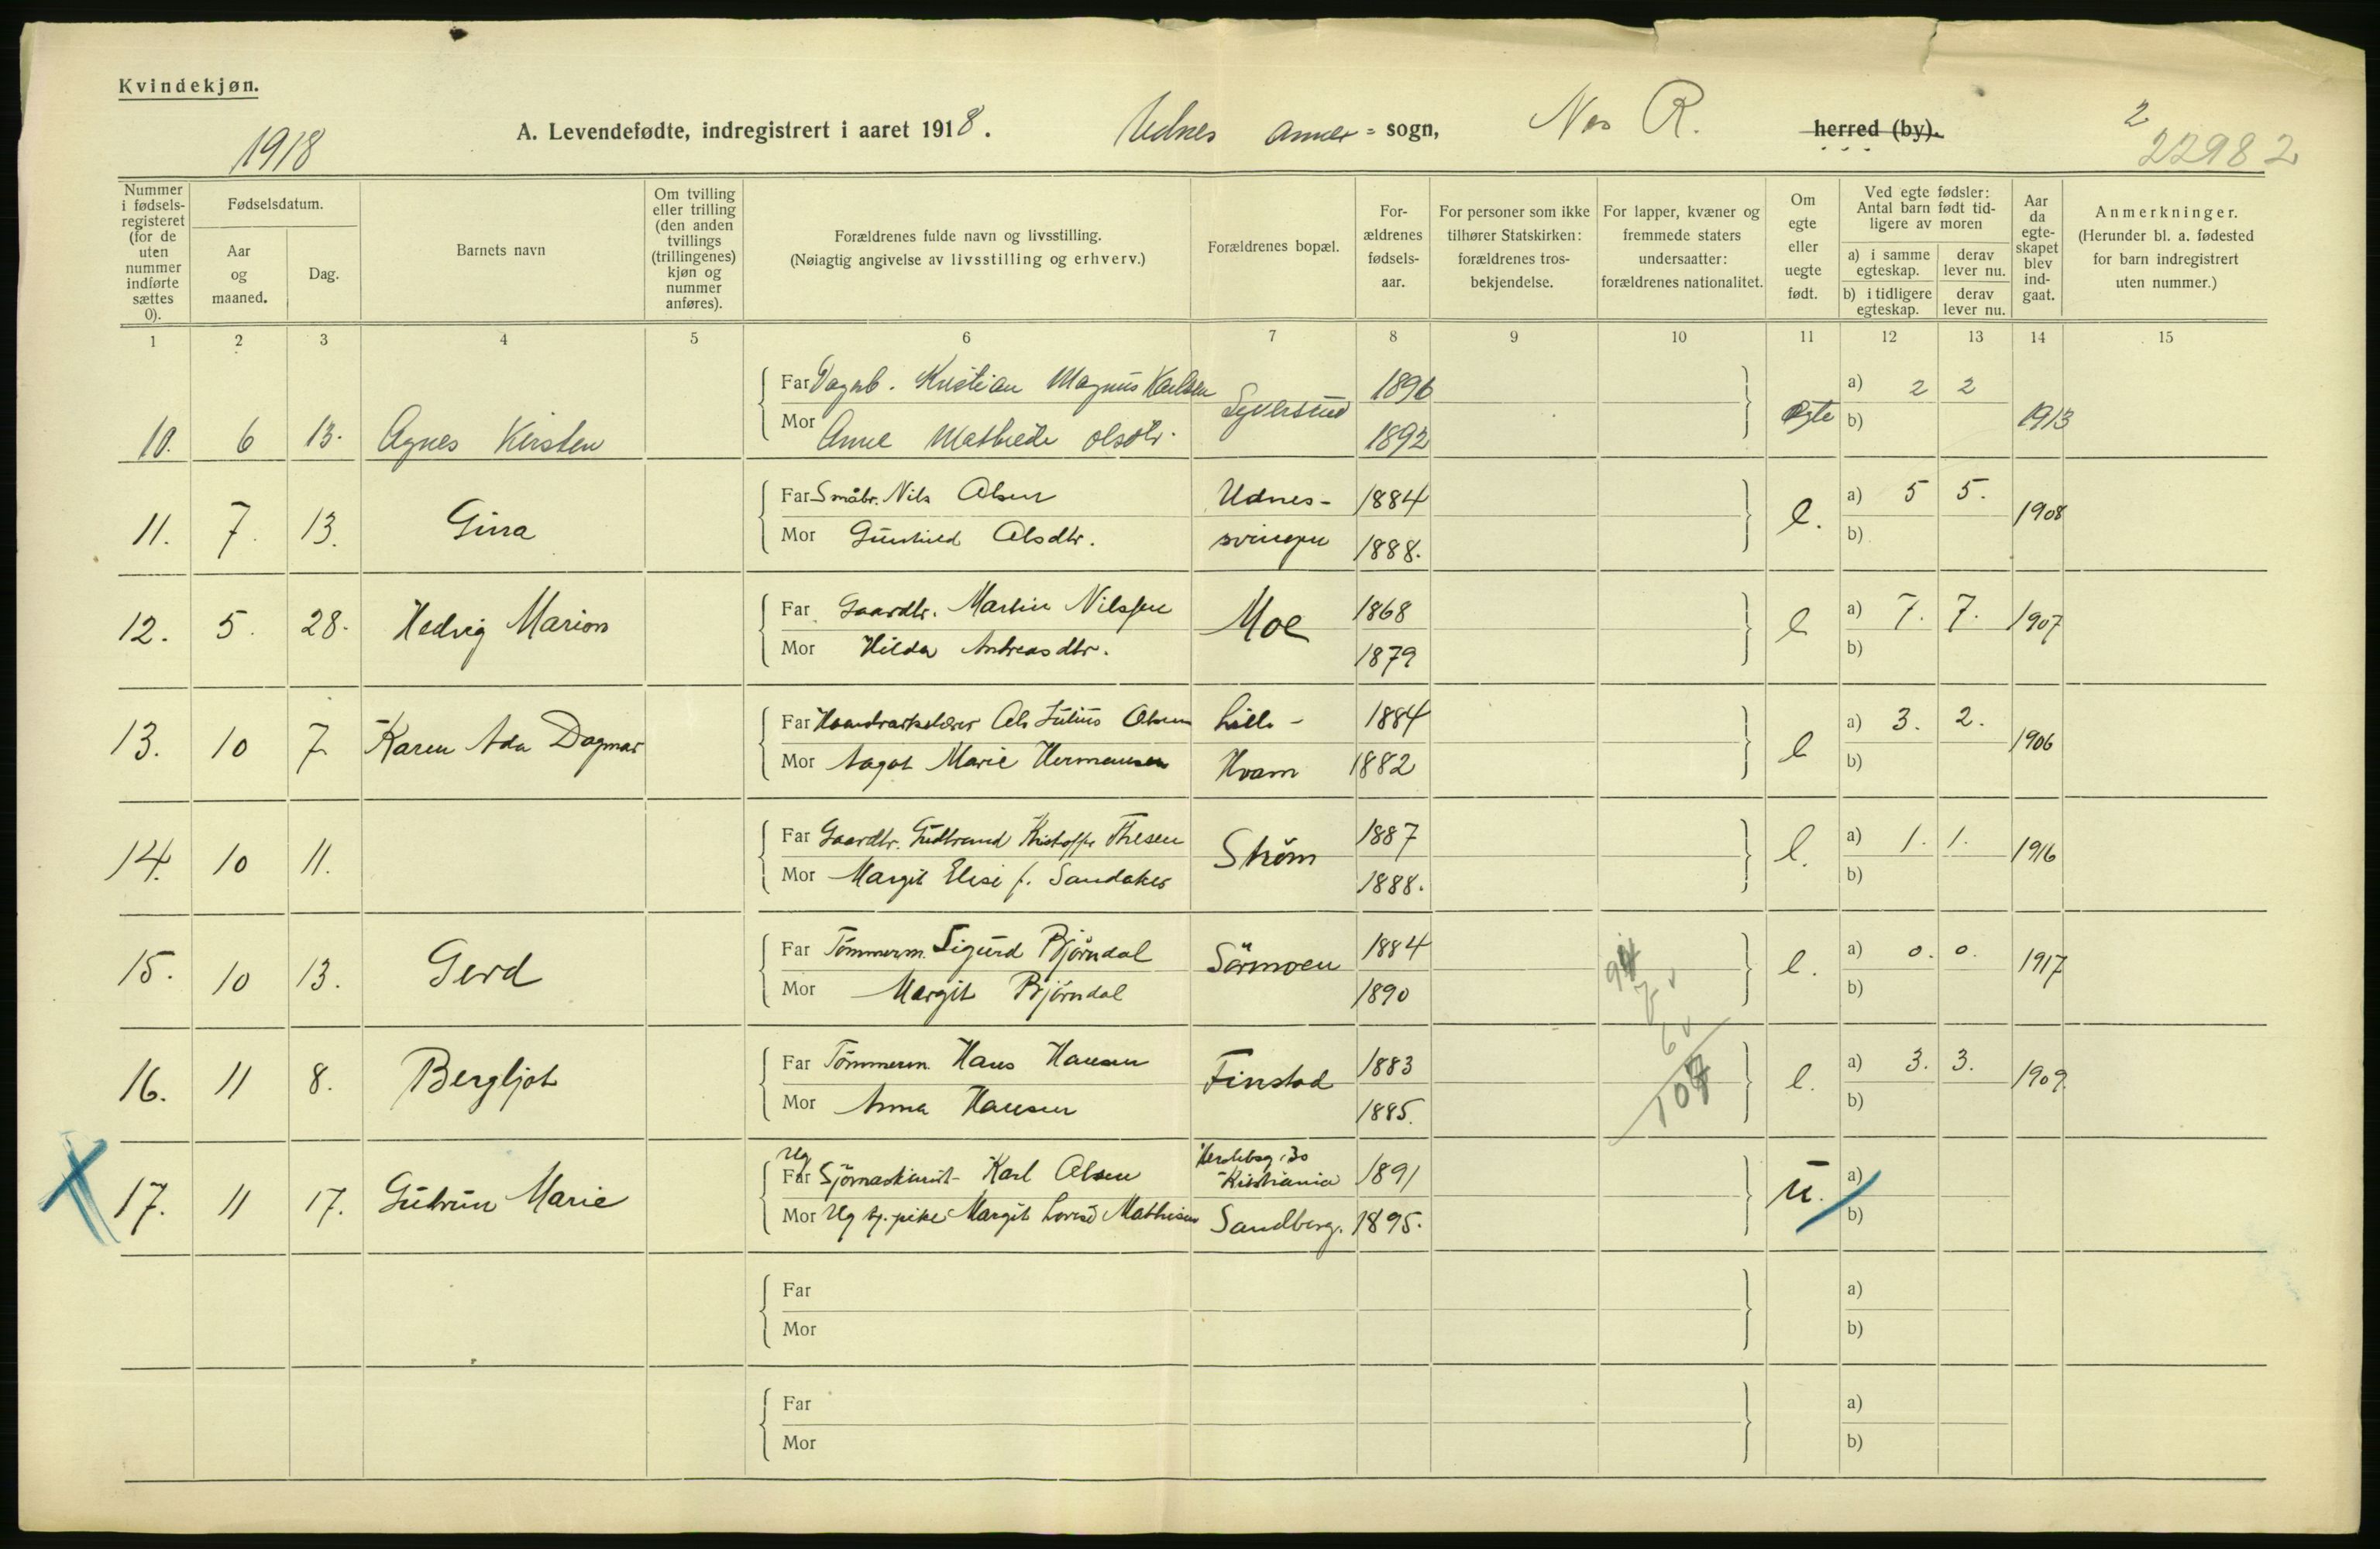 Kvindekjøn.
1918
A. Levendefødte, indregistrert i aaret 1918. Udnes annex = sogn, Nes R. herred (by).
2
22982
Nummer i fødsels-registeret (for de uten nummer indførte sættes 0).
Fødselsdatum.
Aar og maaned.
Dag.
Barnets navn
Om tvilling eller trilling (den anden tvillings (trillingenes) kjøn og nummer anføres).
Forældrenes fulde navn og livsstilling.
(Nøiagtig angivelse av livsstilling og erhverv.)
Forældrenes bopæl.
For-ældrenes fødsels-aar.
For personer som ikke tilhører Statskirken: forældrenes tros-bekjendelse.
For lapper, kvæner og fremmede staters undersaatter: forældrenes nationalitet.
Om egte eller uegte født.
Ved egte fødsler: Antal barn født tid-ligere av moren
a) i samme egteskap.
derav lever nu.
b) i tidligere egteskap.
derav lever nu.
Aar da egte-skapet blev ind-gaat.
Anmerkninger.
(Herunder bl. a. fødested for barn indregistrert uten nummer.)
1 2 3 4 5 6 7 8 9 10 11 12 13 14 15
Far Dagarb. Kristian Magnus Karlsen 1896 a) 2 2
10. 6 13. Agnes Kirsten Mor Anne Mathilde Olsdtr. 1892 egte b) 1913
Far Småbr. Nils Olsen Udnes- 1884 a) 5 5.
11. 7. 13. Gina Mor Gunhild Olsdtr. svingen 1888. e. b) 1908
Far Gaardbr. Martin Nilssen 1868 a) 7. 7.
12. 5. 28. Hedvig Marion Mor Hilda Andreasdtr. Moe 1879 e b) 1907
Far Ole Julius Olsen Lille- 1884 a) 3. 2.
13. 10 7 Karen Ada Dagmar Mor Aagot Marie Hermansen Hvam 1882 e b) 1906
Far Gaardbr. Gudbrand Kristoffer Thesen 1887 a) 1. 1.
14. 10 11. Mor Margit Elise f. Sandaker Strøm 1888. e. b) 1916
Far Tömmerm. Sigurd Björndal 1884 a) 0. 0.
15. 10 13. Gerd Mor Margit Björndal Sörmoen 1890 e. b) 1917
7 v
6 v
Far Tömmerm. Hans Hansen 1883 a) 3. 3.
16. 11 8. Bergljot Mor Anna Hansen Finstad 1885. e. b) 1909
107
Far Ug Sjömaskinist- Karl Olsen Kristiania 1891 a)
17. 11 17. Gudrun Marie Mor Ug tj. pike Margit Lovise Mathisen Sandberg. 1895. u. b)
Far a)
Mor b)
Far a)
Mor b)